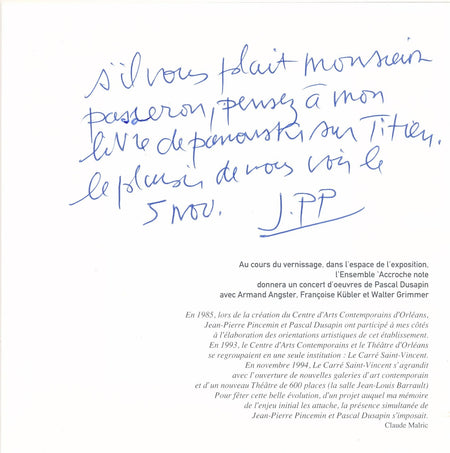 s'il vous plait monsieur
passeron, pensez à mon
livre de panovski sur Titien.
le plaisir de vous voir le
5 nov. J.PP
Au cours du vernissage, dans l'espace de l'exposition,
l'Ensemble 'Accroche note
donnera un concert d'oeuvres de Pascal Dusapin
avec Armand Angster, Françoise Kübler et Walter Grimmer
En 1985, lors de la création du Centre d'Arts Contemporains d'Orléans,
Jean-Pierre Pincemin et Pascal Dusapin ont participé à mes côtés
à l'élaboration des orientations artistiques de cet établissement.
En 1993, le Centre d'Arts Contemporains et le Théâtre d'Orléans
se regroupaient en une seule institution : Le Carré Saint-Vincent.
En novembre 1994, Le Carré Saint-Vincent s'agrandit
avec l'ouverture de nouvelles galeries d'art contemporain
et d'un nouveau Théâtre de 600 places (la salle Jean-Louis Barrault)
Pour fêter cette belle évolution, d'un projet auquel ma mémoire
de l'enjeu initial les attache, la présence simultanée de
Jean-Pierre Pincemin et Pascal Dusapin s'imposait.
Claude Malric